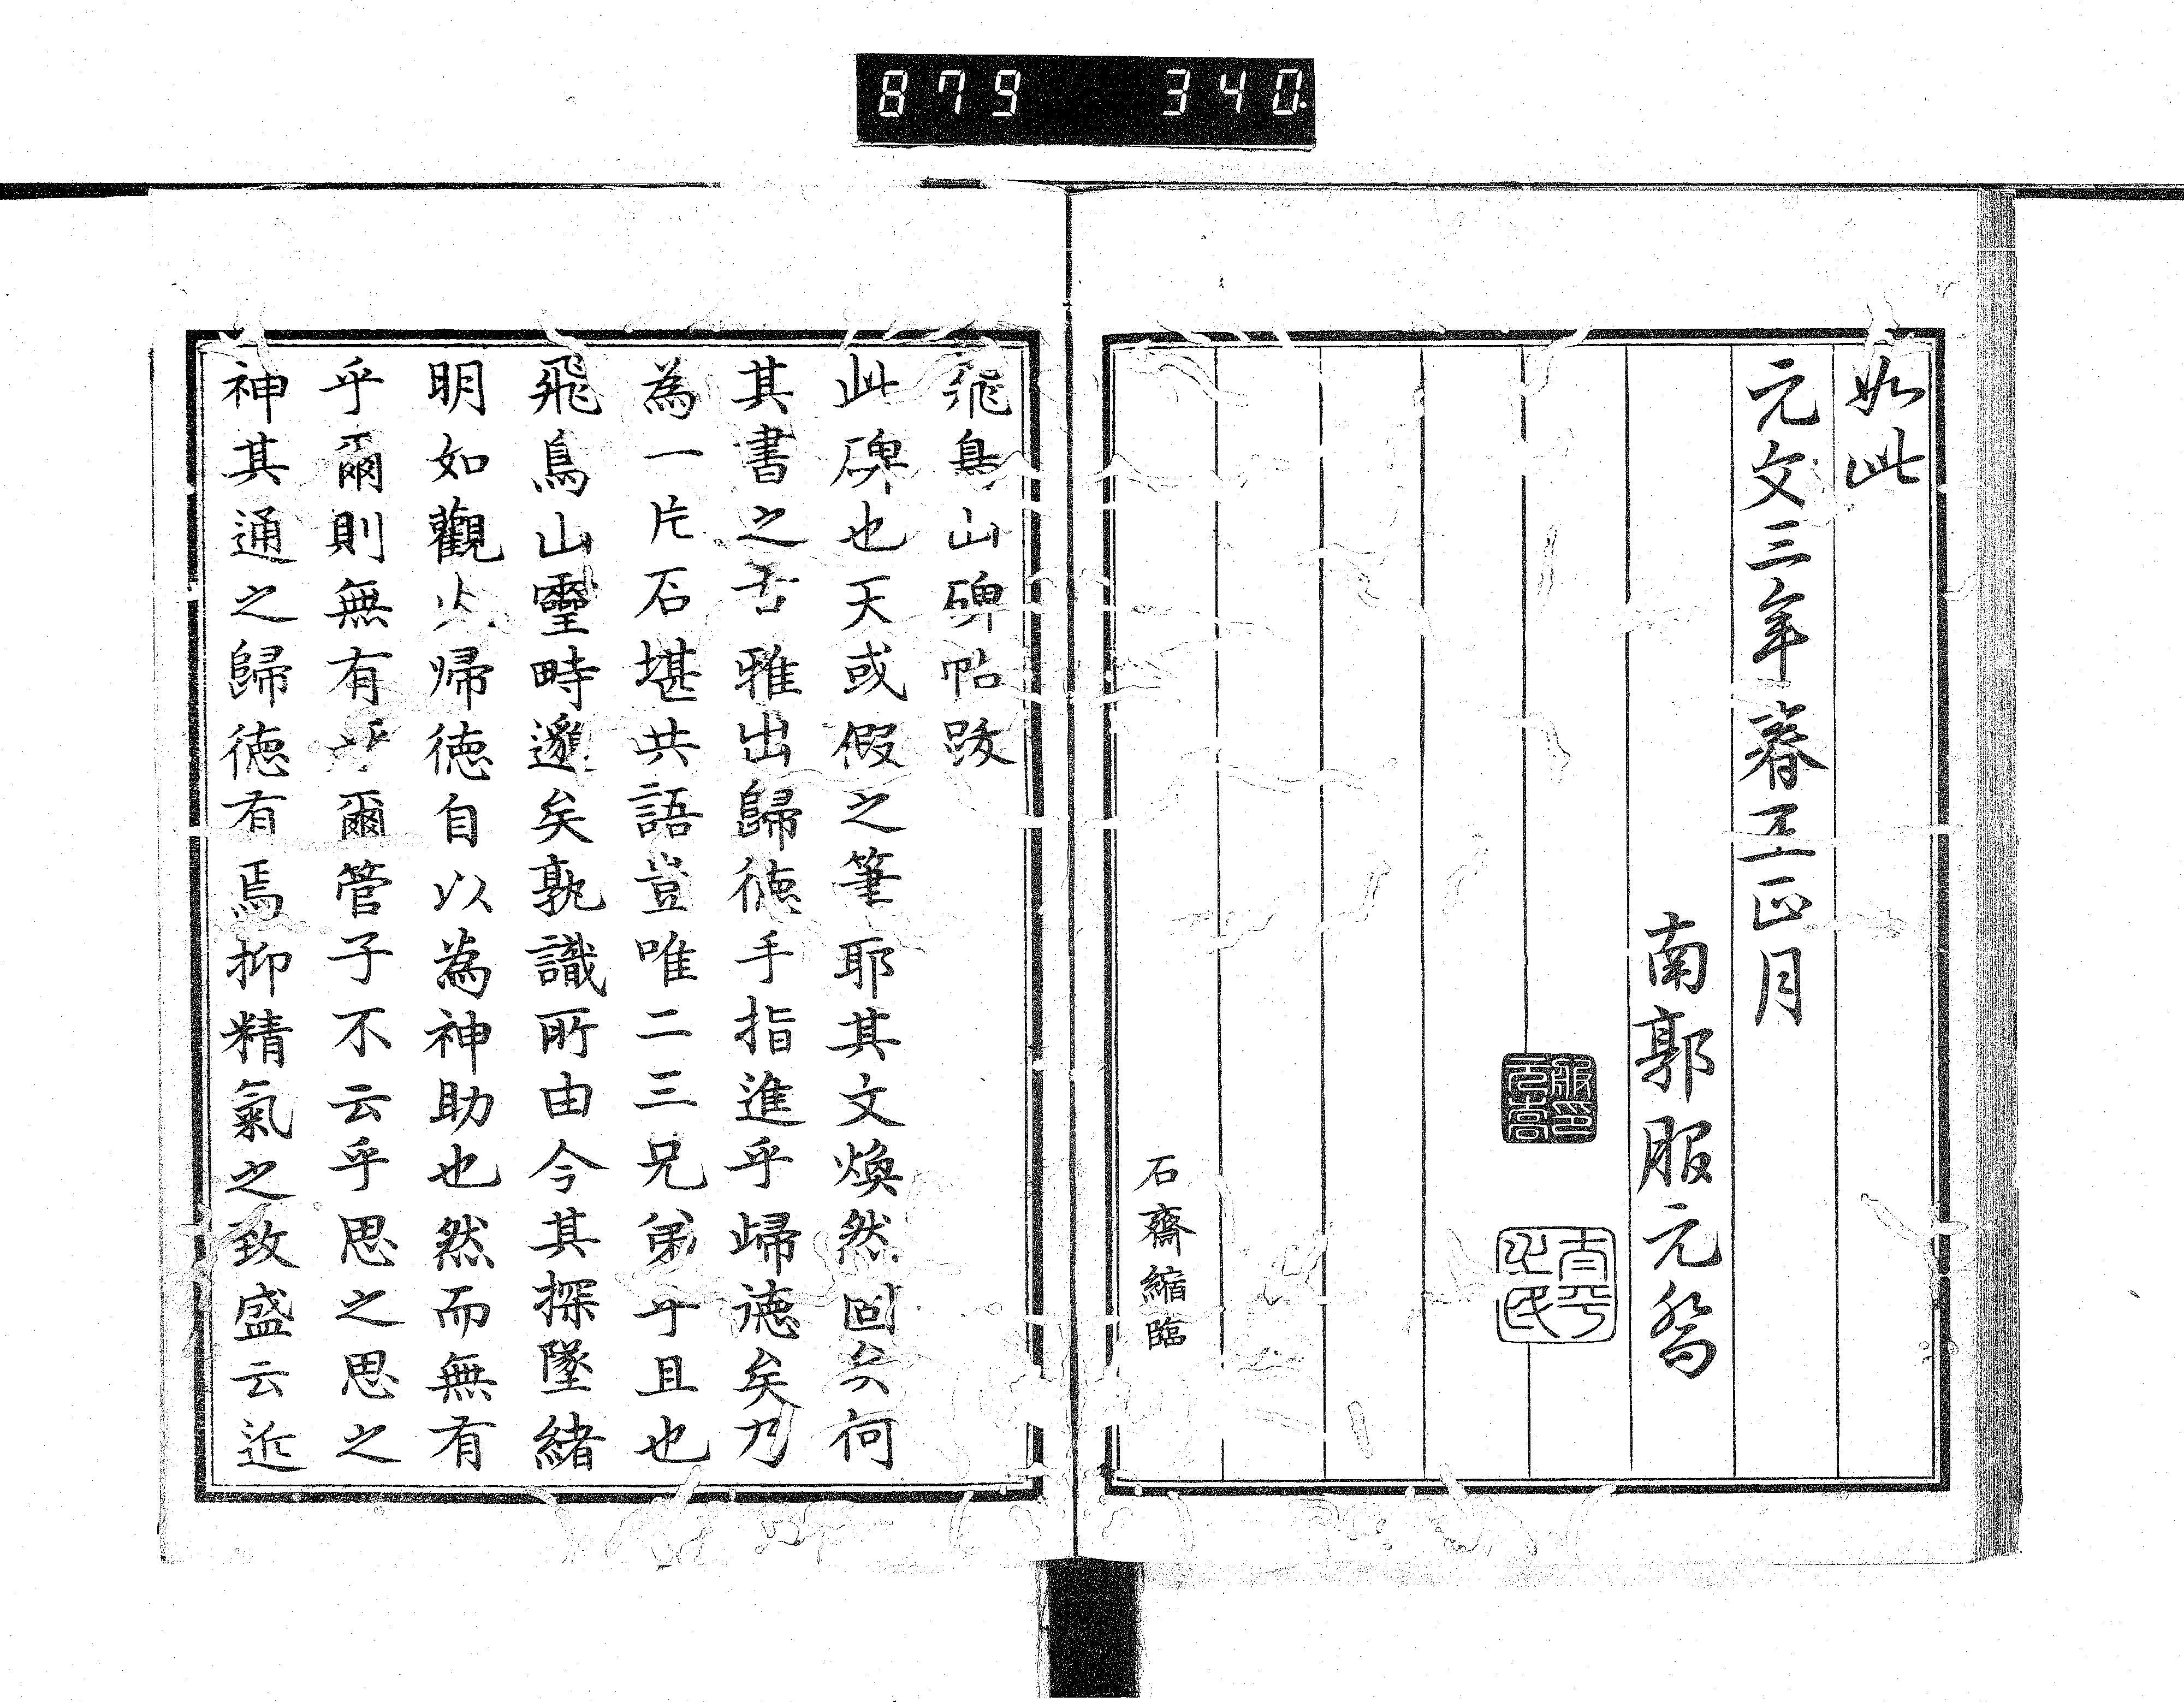 879 340
如此
元文三年春王正月
南郭服元喬
服印元喬
石齋縮臨
飛鳥山碑帖跋
此碑也天或假之筆耶其文煥然固矣何
其書之古雅出歸德手指進乎歸德矣乃
為一片石堪共語豈唯二三兄弟乎且也
飛鳥山靈畤邈矣孰識所由今其探墜緒
明如觀火歸德自以為神助也然而無有
乎爾則無有乎爾管子不云乎思之思之
神其通之歸德有焉抑精氣之致盛云近